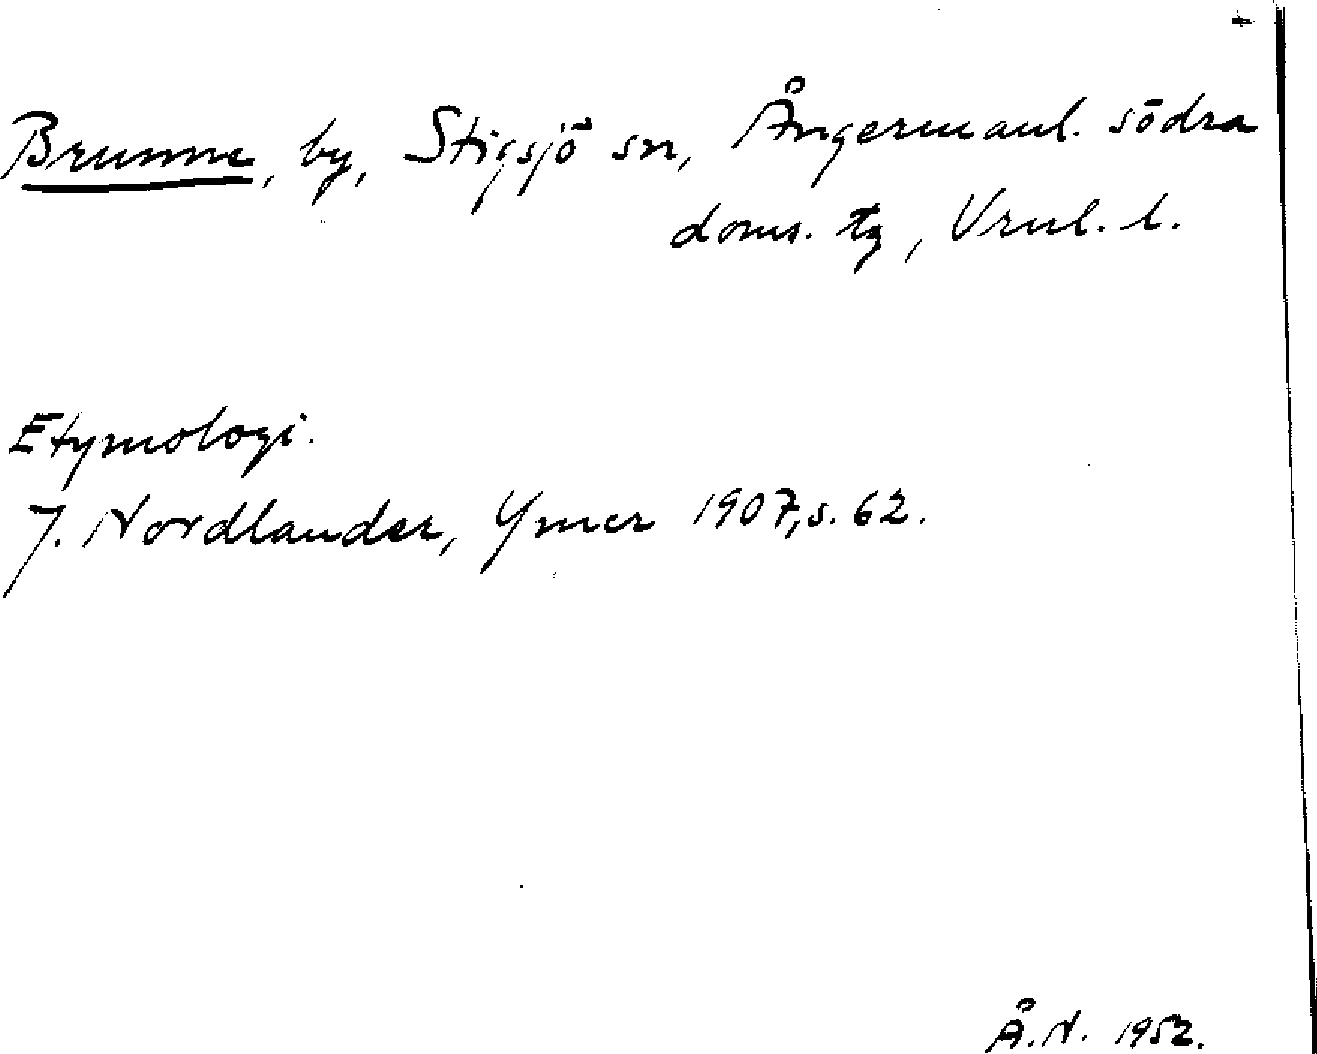 Brunne, by, Stigsjö sn, Ångermanl. södra
doms. tg, Vrnl. l.
Etymologi.
J. Nordlander, Ymer 1907, s. 62.
Å.N. 1952.